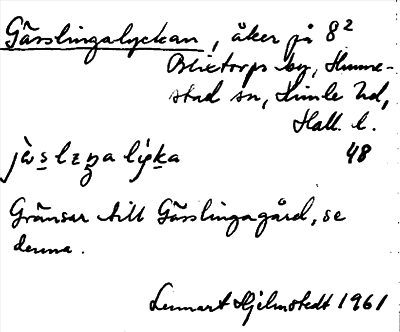 Gässlingalyckan, åker på 8²
Blixtorps by, Himme-
stad sn, Himle hd,
Hall. l.
48
Gränsar till Gässlingagård, se
denna.
Lennart Hjelmstedt 1961